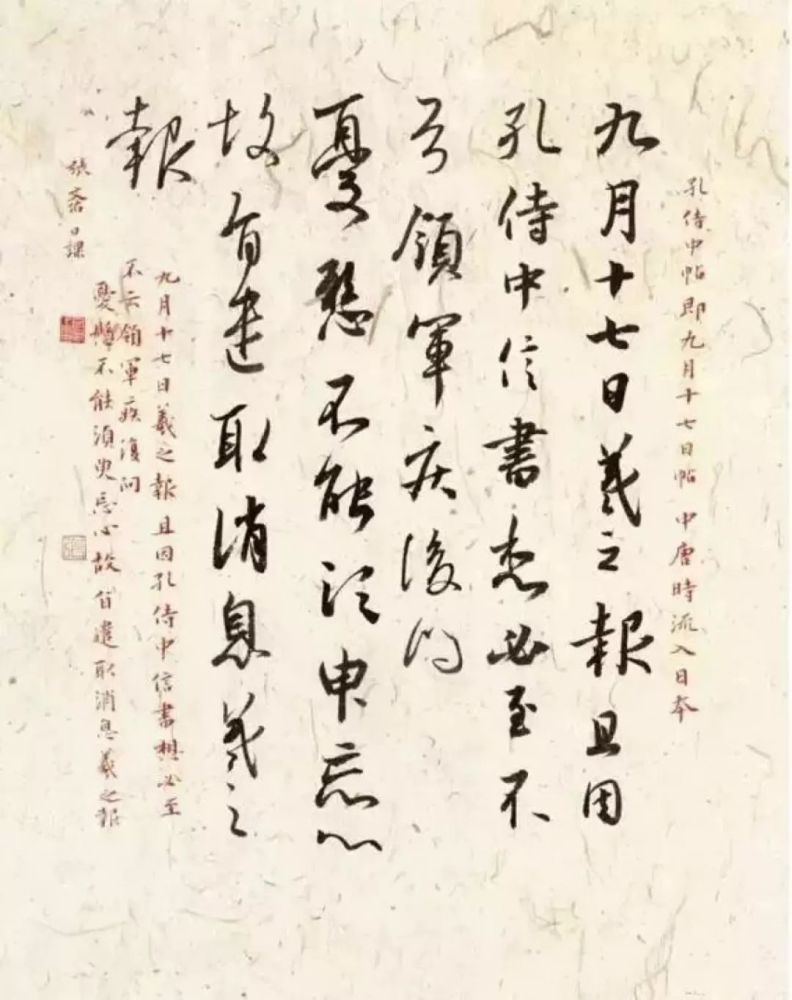 孔侍中帖即九月十七日帖 中唐時流入日本
九月十七日羲之報且因
孔侍中信書想必至不
知領軍疾後問
憂懸不能須臾忘心
故旨遣取消息羲之
報
九月十七日羲之報且因孔侍中信書想必至
不云領軍疾後問
憂懸不能須臾忘心故旨遣取消息羲之報
齋日課